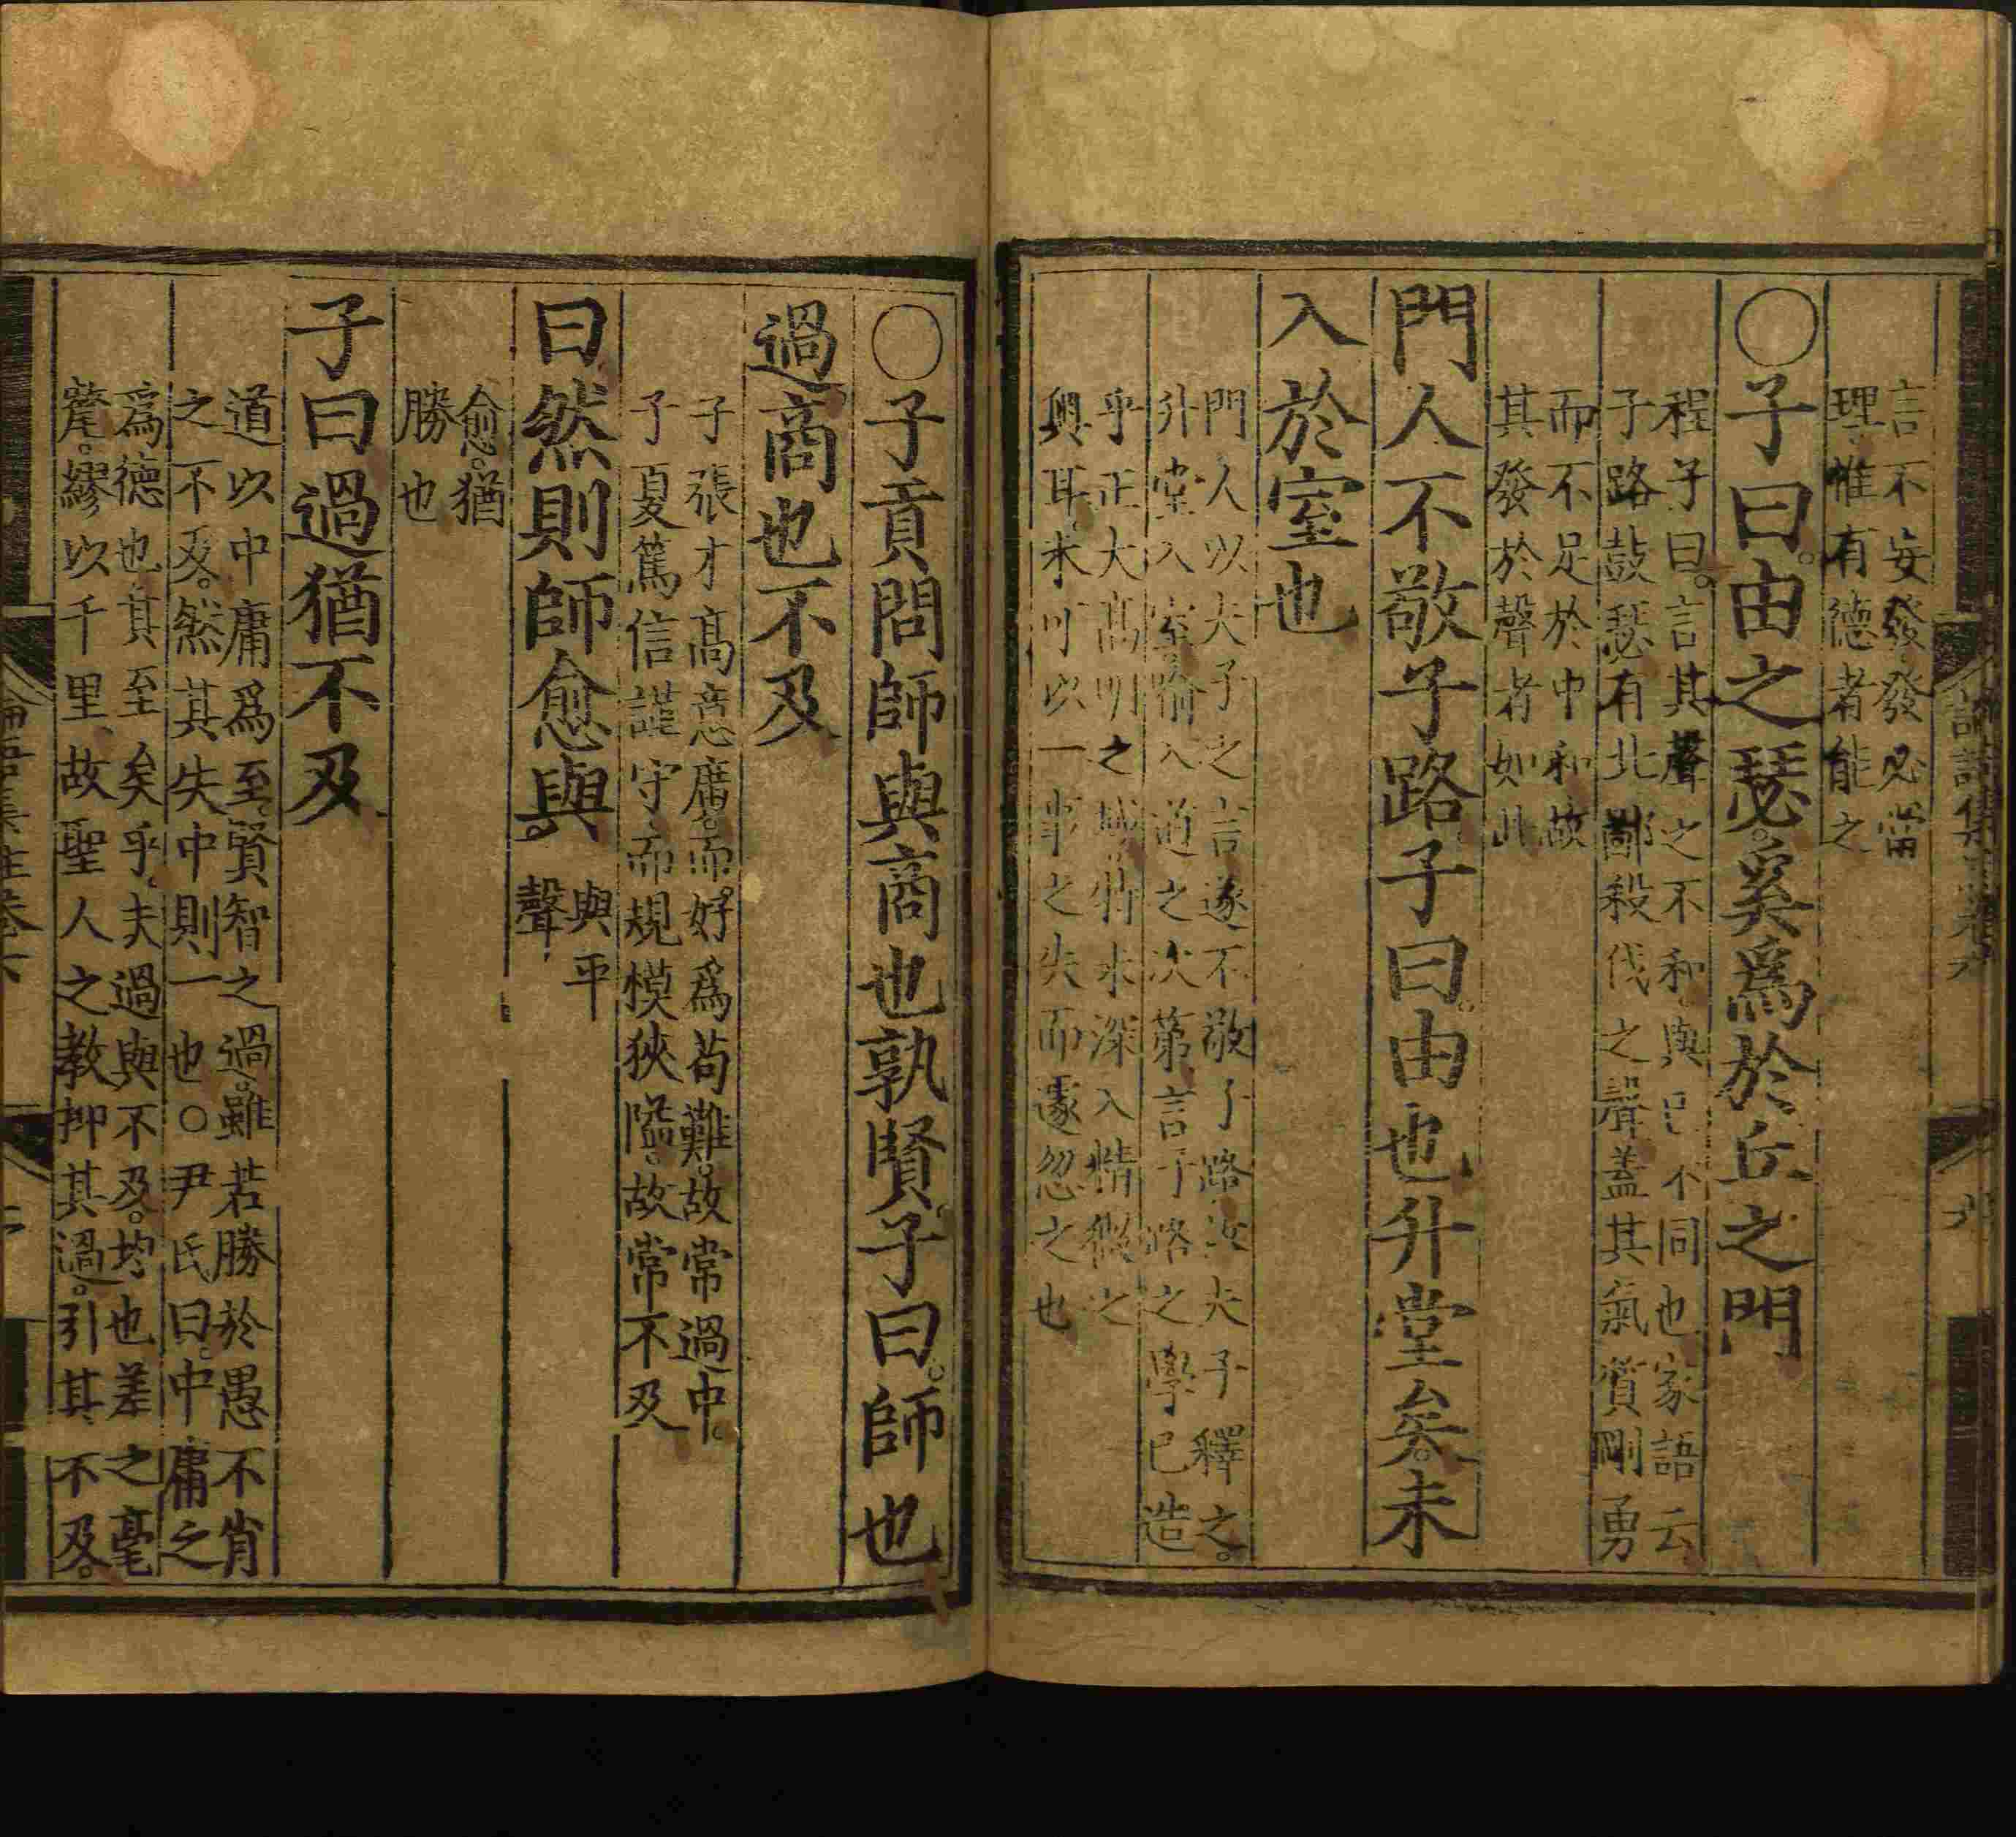 言不妄發發必當
理惟有德者能之
○子曰由之瑟奚爲於丘之門
程子曰言其聲之不和與已不同也家語云
子路鼓瑟有北鄙殺伐之聲蓋其氣質剛勇
而不足於中和故
其發於聲者如此
門人不敬子路子曰由也升堂矣未
入於室也
門人以夫子之言遂不敬子路故夫子釋之
升堂入室喻入道之次第言子路之學已造
乎正大高明之域特未深入精微之
奧耳未可以一事之失而遽忽之也
○子貢問師與商也孰賢子曰師也
過商也不及
子張才高意廣而好爲苟難故常過中
子夏篤信謹守而規模狹隘故常不及
曰然則師愈與
與平
聲
愈猶
勝也
子曰過猶不及
道以中庸爲至賢智之過雖若勝於愚不肖
之不及然其失中則一也○尹氏曰中庸之
爲德也其至矣乎夫過與不及均也差之毫
釐繆以千里故聖人之教抑其過引其不及